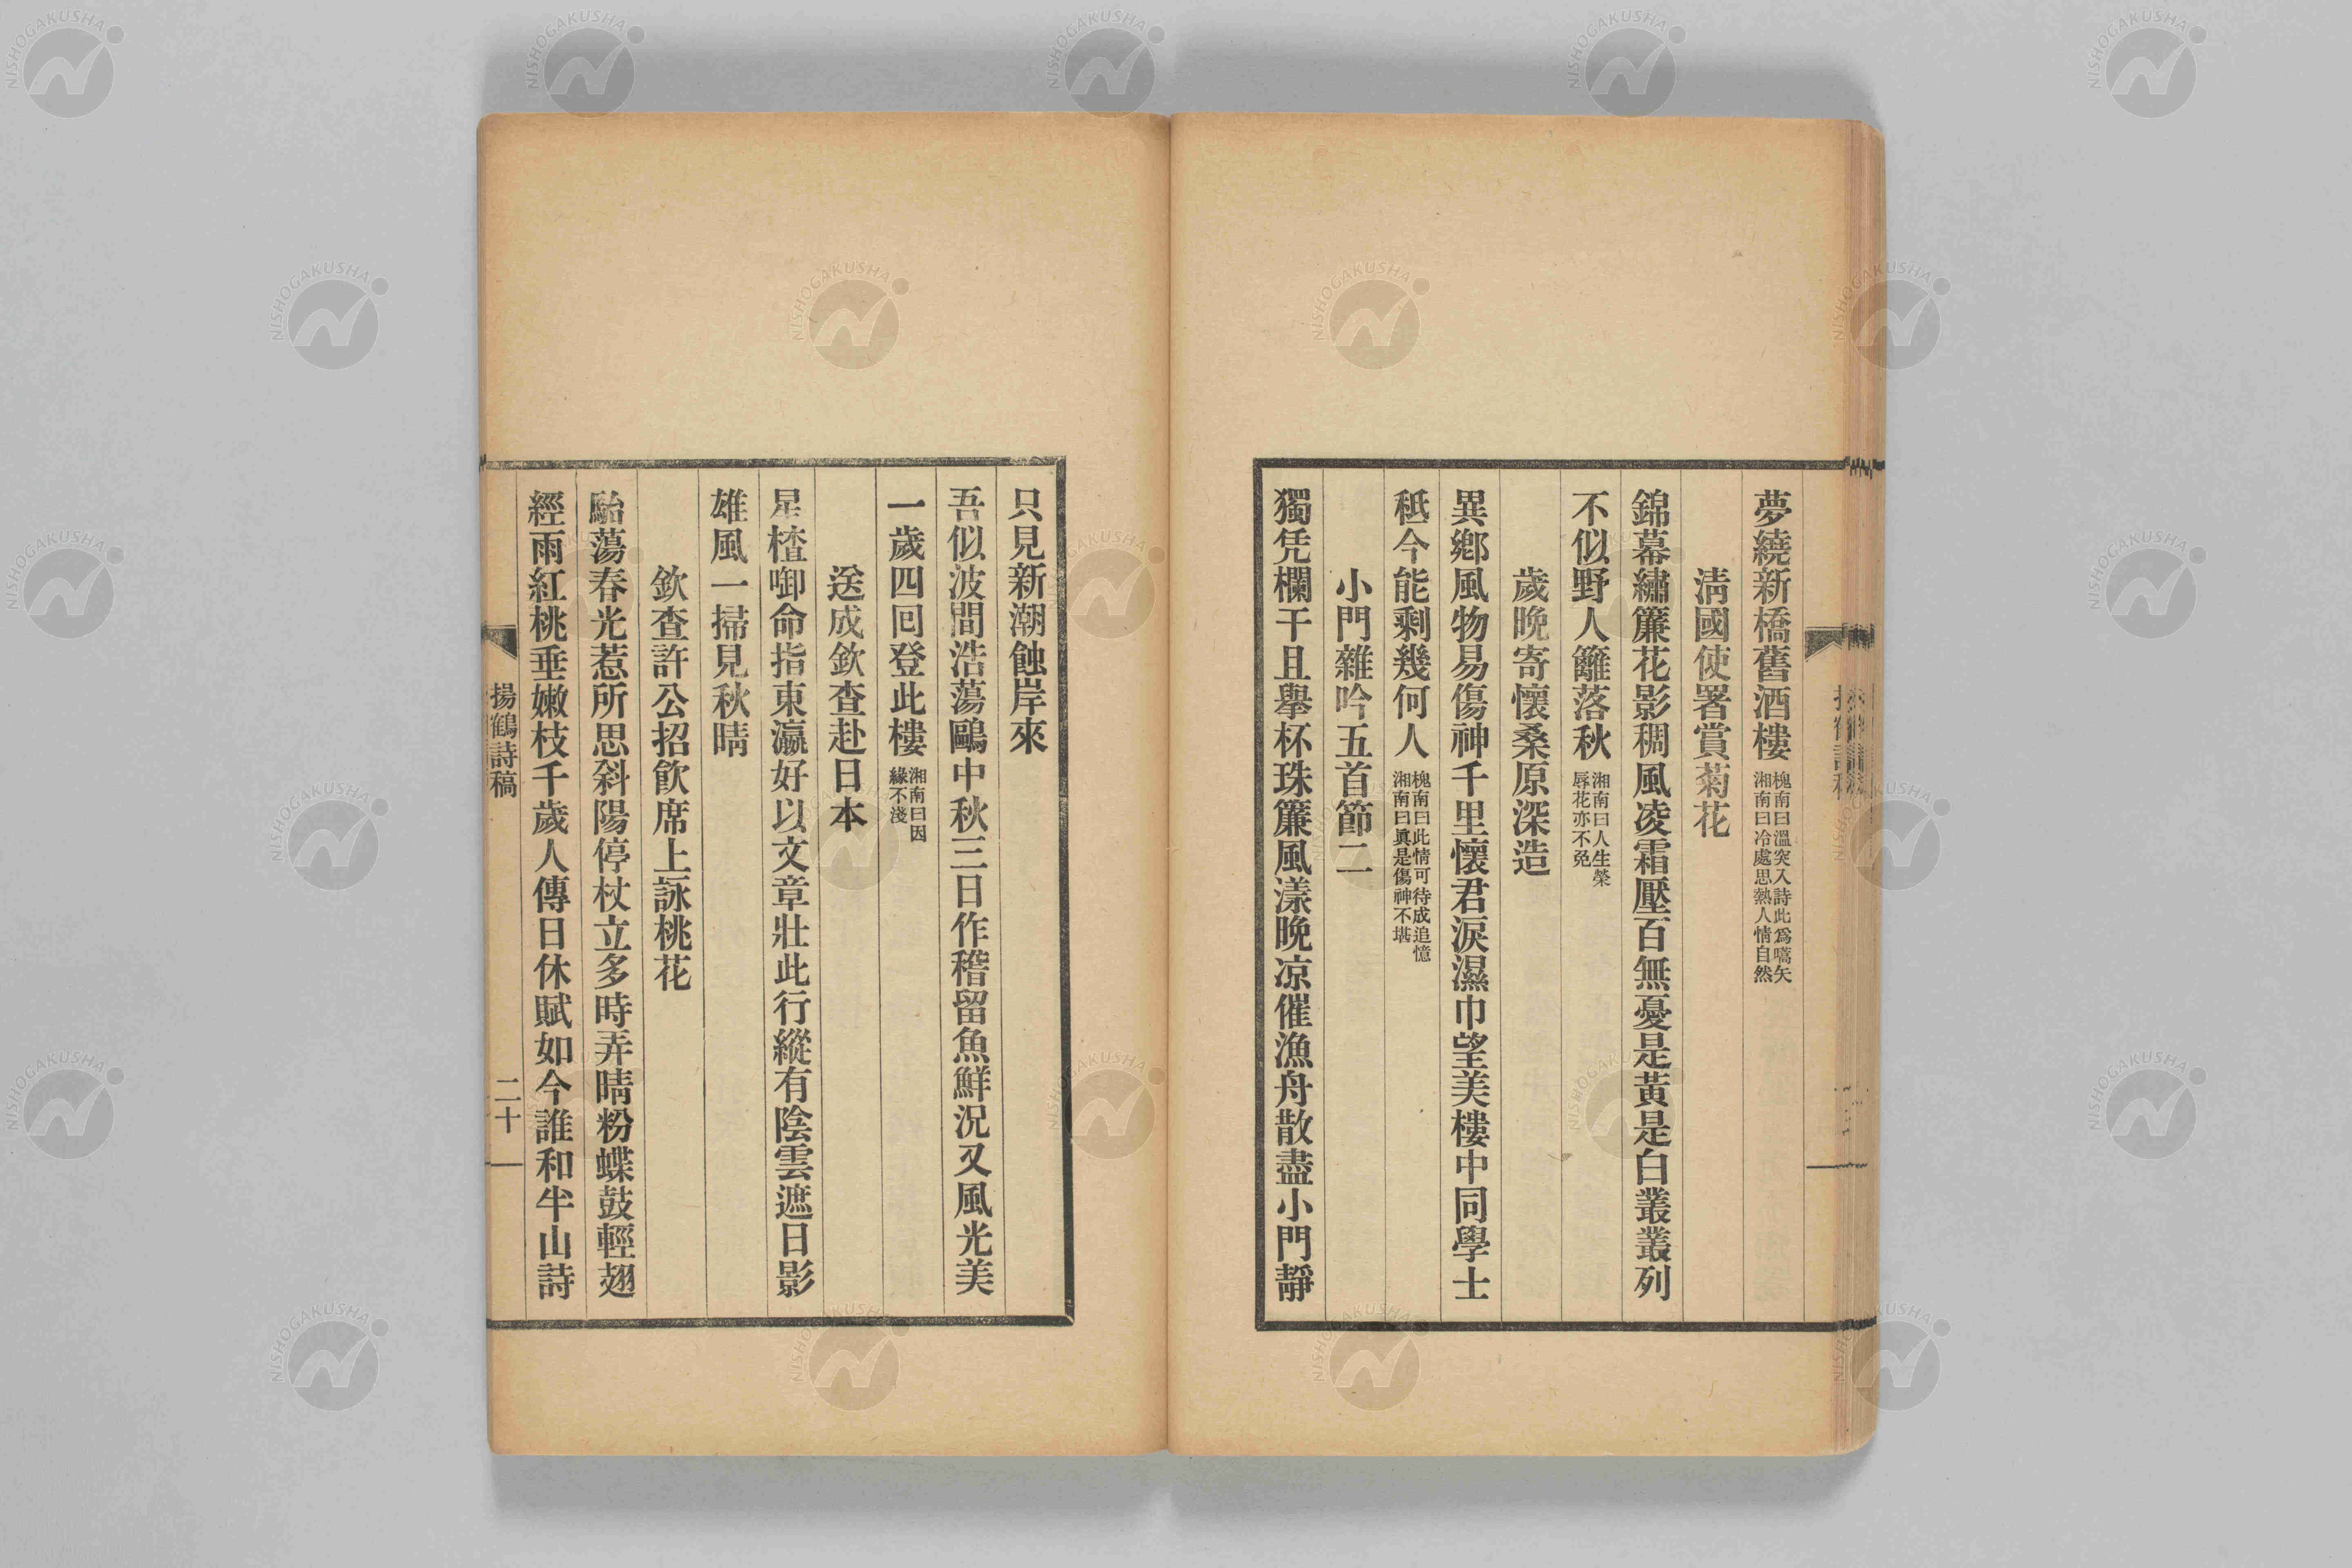 夢繞新橋舊酒樓
槐南曰溫突入詩此爲嚆矢
湘南曰冷處思熱人情自然
淸國使署賞菊花
錦幕繡簾花影稠風凌霜壓百無憂是黃是白叢叢列
不似野人籬落秋
湘南曰人生榮
辱花亦不免
歲晚寄懷桑原深造
異鄕風物易傷神千里懷君淚濕巾望美樓中同學士
秪今能剩幾何人
槐南曰此情可待成追憶
湘南曰眞是傷神不堪
小門雜吟五首節二
獨凭欄干且擧杯珠簾風漾晚凉催漁舟散盡小門靜
只見新潮蝕岸來
吾似波間浩蕩鷗中秋三日作稽留魚鮮況又風光美
一歲四回登此樓
湘南曰因
緣不淺
送成欽查赴日本
星楂啣命指東瀛好以文章壯此行縱有陰雲遮日影
雄風一掃見秋晴
欽查許公招飮席上詠桃花
駘蕩春光惹所思斜陽停杖立多時弄晴粉蝶鼓輕翅
經雨紅桃垂嫩枝千歲人傳日休賦如今誰和半山詩
揚鶴詩稿
二十
NISHOGAKUSHA